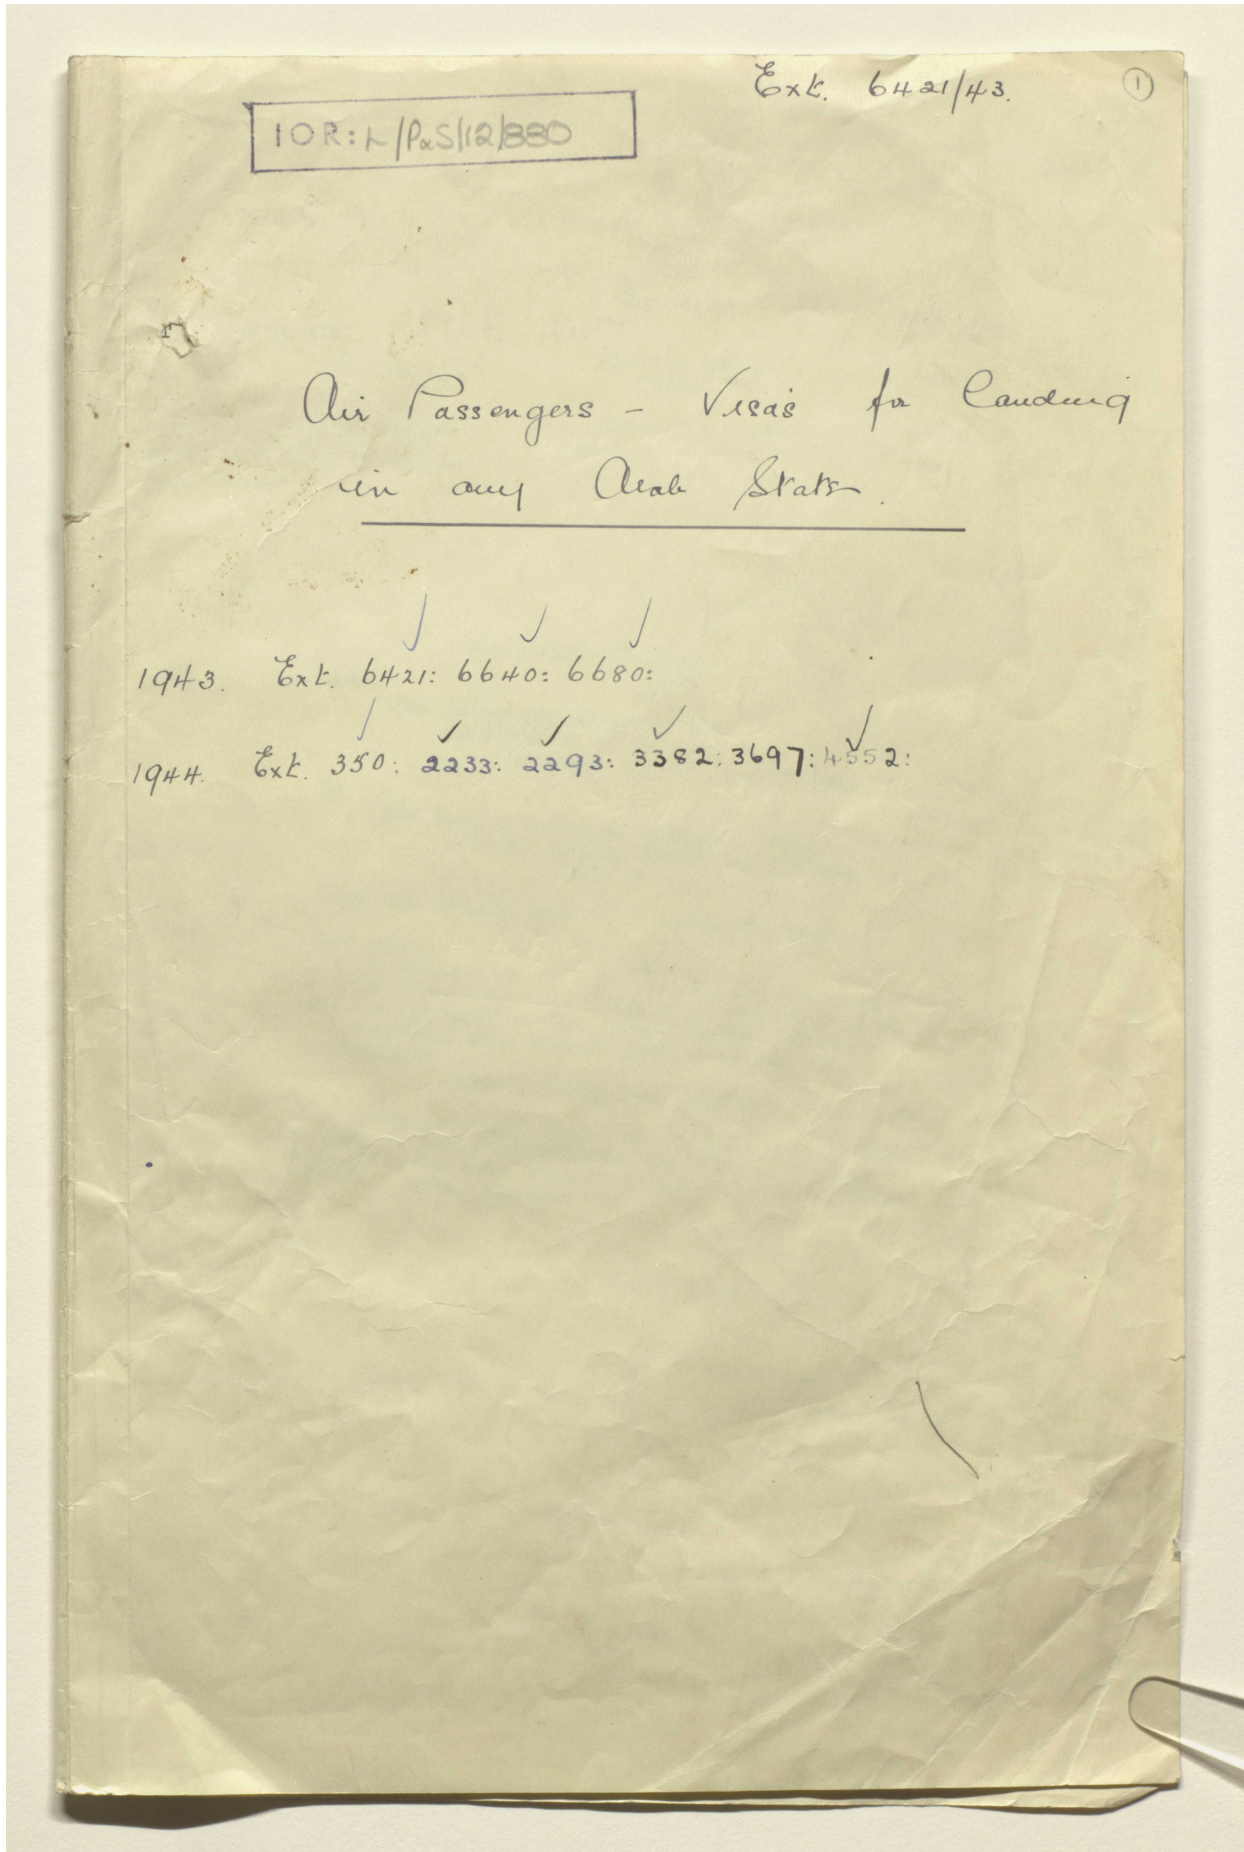 Ext. 6421/43.
1
IOR: L/P&S/12/880
Air Passengers - Visas for landing
in any Arab State.
1943. Ext. 6421: 6640: 6680:
1944. Ext. 350: 2233: 2293: 3382: 3697: 4552: